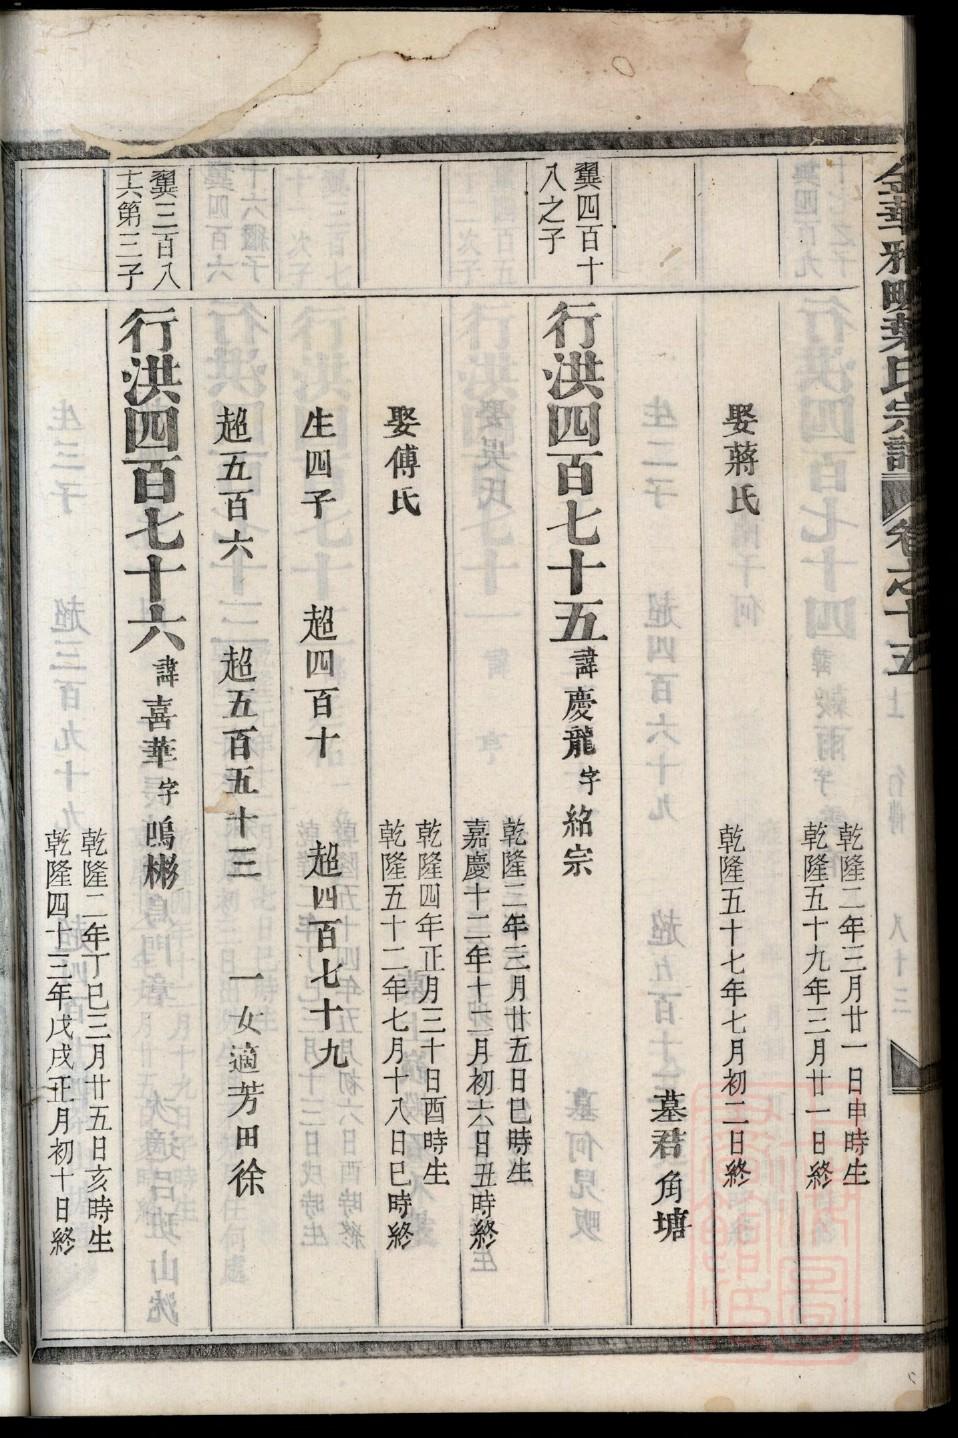 金華雅畈葉氏宗譜 卷之十五
乾隆二年三月廿一日申時生
乾隆五十九年三月廿一日終
娶蔣氏
乾隆五十七年七月初二日終
墓君角塘
翼四百十
八之子
行洪四百七十五 諱慶龍 字紹宗
乾隆二年三月廿五日巳時生
嘉慶十二年十二月初六日丑時終
娶傅氏
乾隆四年正月三十日酉時生
乾隆五十二年七月十八日巳時終
生四子 超四百十 超四百七十九
超五百六 超五百五十三 一女適芳田徐
翼三百八
十六第三子
行洪四百七十六 諱喜華 字鳴彬
乾隆二年丁巳三月廿五日亥時生
乾隆四十三年戊戌正月初十日終